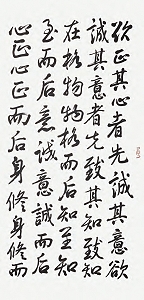 欲正其心者先誠其意欲
誠其意者先致其知致知
在格物物格而后知至知
至而后意誠意誠而后
心正心正而后身修身修而